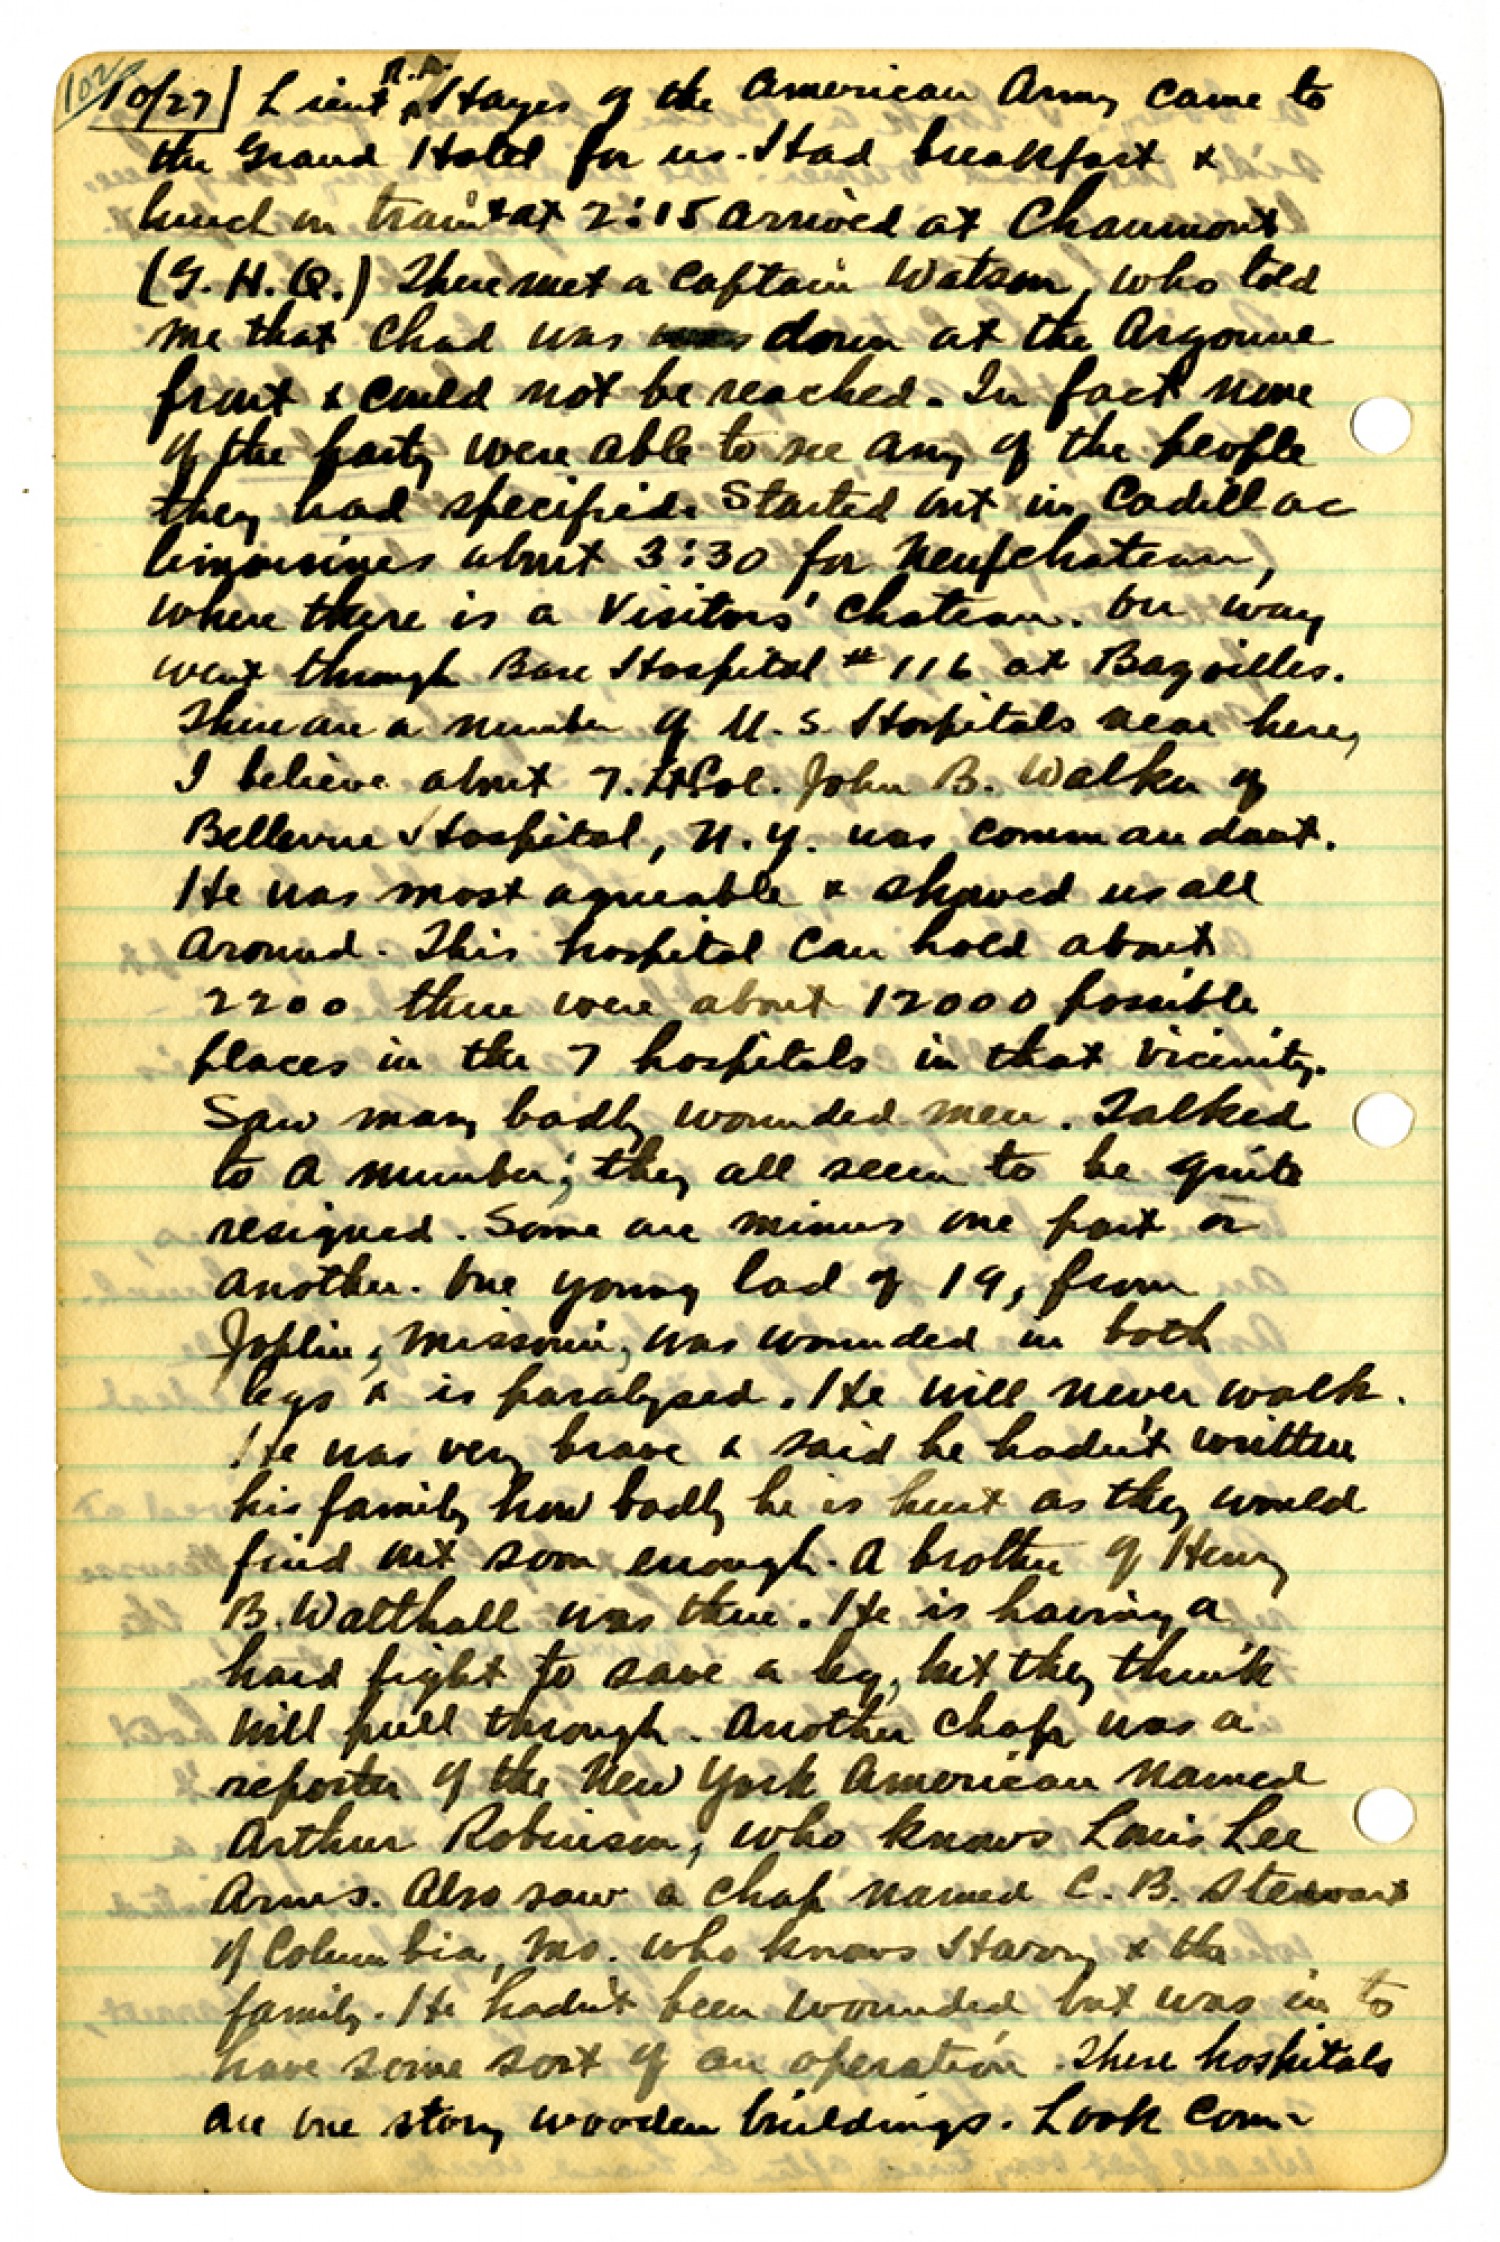 102
10/27 Lieut R.A. Hayes of the American Army came to
the Grand Hotel for us. Had breakfast &
lunch on train & at 2:15 arrived at Chaumont
(G.H.Q.) There met a Captain Watson, who told
me that Chad was down at the Argonne
front & could not be reached. In fact none
of the party were able to see any of the people
they had specified. Started out in Cadillac
limousines about 3:30 for Neufchateau,
where there is a Visitors' Chateau. On way
went through Base Hospital #116 at Bazoilles.
There are a number of U.S. Hospitals near here,
I believe about 7. Lt Col. John B. Walker of
Bellevue Hospital, N.Y. was commandant.
He was most agreeable & showed us all
around. This hospital can hold about
2200 there were about 12000 possible
places in the 7 hospitals in that vicinity.
Saw many badly wounded men. Talked
to a number; they all seem to be quite
resigned. Some are minus one part or
another. One young lad of 19, from
Joplin, Missouri, was wounded in both
legs & is paralysed. He will never walk.
He was very brave & said he hadn't written
his family how badly he is hurt as they would
find out soon enough. A brother of Henry
B. Walthall was there. He is having a
hard fight to save a leg, but they think
will pull through. Another chap was a
reporter of the New York American named
Arthur Robinson, who knows Louis Lee
Arms. Also saw a chap named C. B. Stewart
of Columbia, Mo. who knows Harry & the
family. He hadn't been wounded but was in to
have some sort of an operation. These hospitals
are one story wooden buildings. Look com-